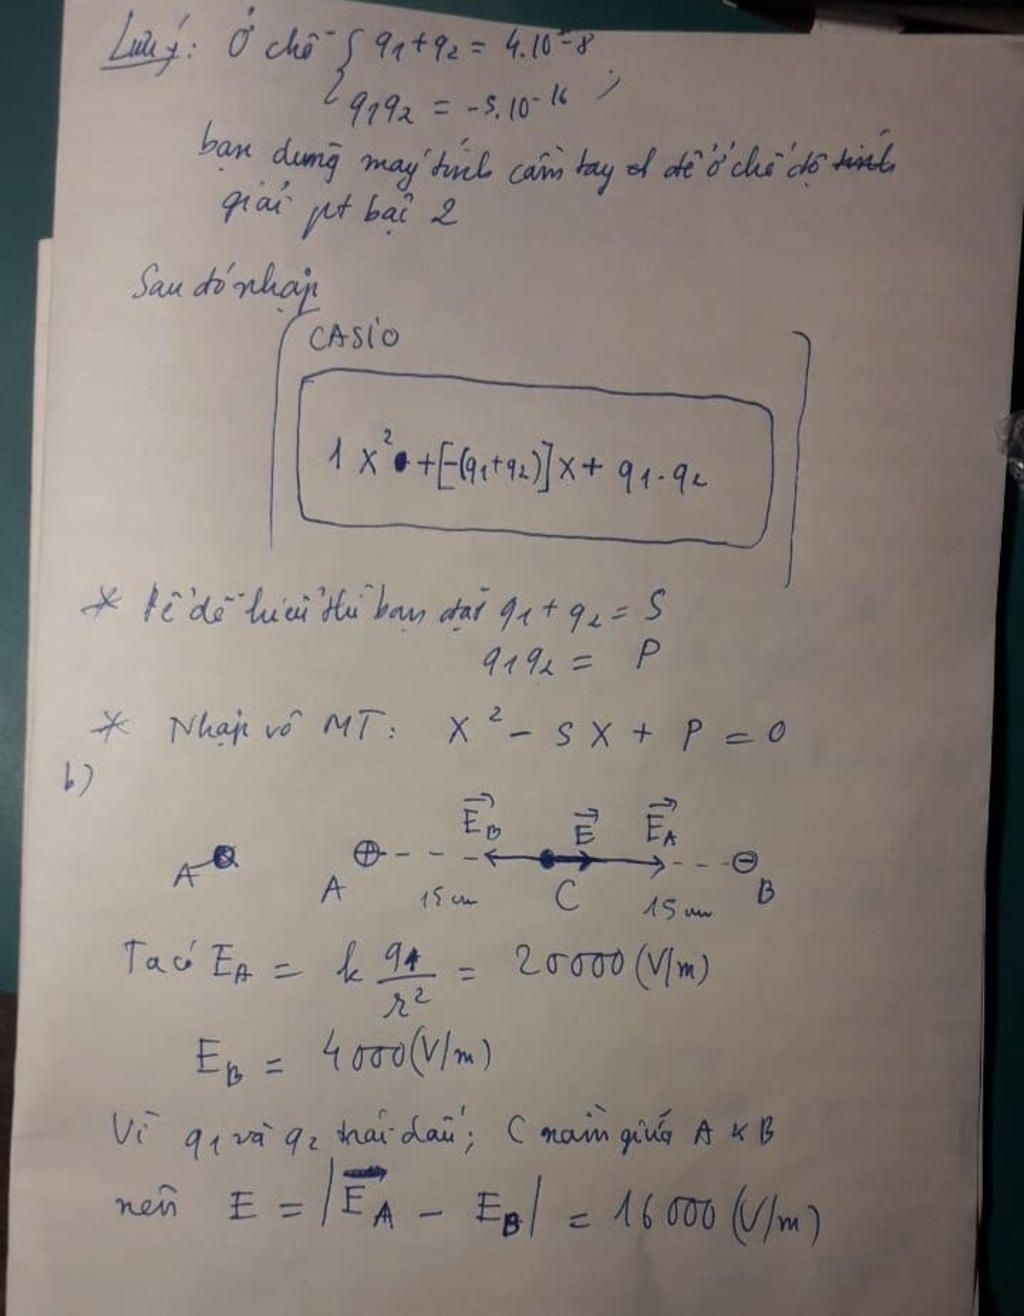 Lưu ý: Ở chỗ { q1+q2 = 4.10^-8
q1q2 = -5.10^-16 ;
bạn dùng máy tính cầm tay để ở chế độ tính
giải pt bậc 2
Sau đó nhập
CASIO
1 x² + [-(q1+q2)]x + q1.q2
* Để dễ hiểu thì bạn đặt q1 + q2 = S
q1q2 = P
* Nhập vô MT: x² - Sx + P = 0
b)
E_B E E_A
A A 15cm C 15cm B
Ta có E_A = k q1/r² = 20000 (V/m)
E_B = 4000 (V/m)
Vì q1 và q2 trái dấu; C nằm giữa A & B
nên E = |E_A - E_B| = 16000 (V/m)